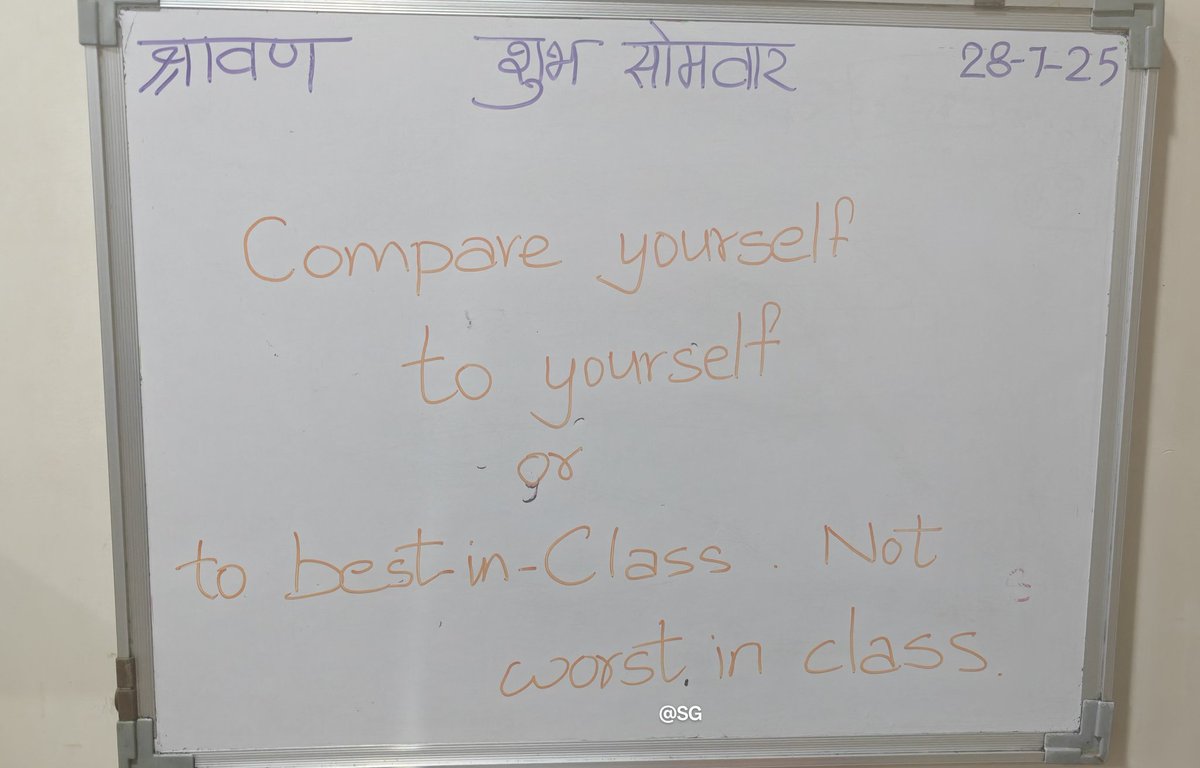 श्रावण शुभ सोमवार 28-7-25
Compare yourself
to yourself
or
to best-in-Class. Not
worst in class.
@SG